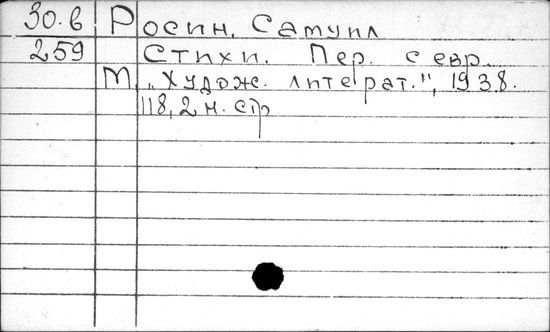 30.в Росин, Самуил
259 Стихи. Пер. с евр.
М. „Худож. литерат.", 1938.
118, 2 н. стр